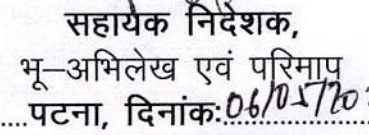 सहायक निदेशक,
भू–अभिलेख एवं परिमाप
....पटना, दिनांक:06/05/20